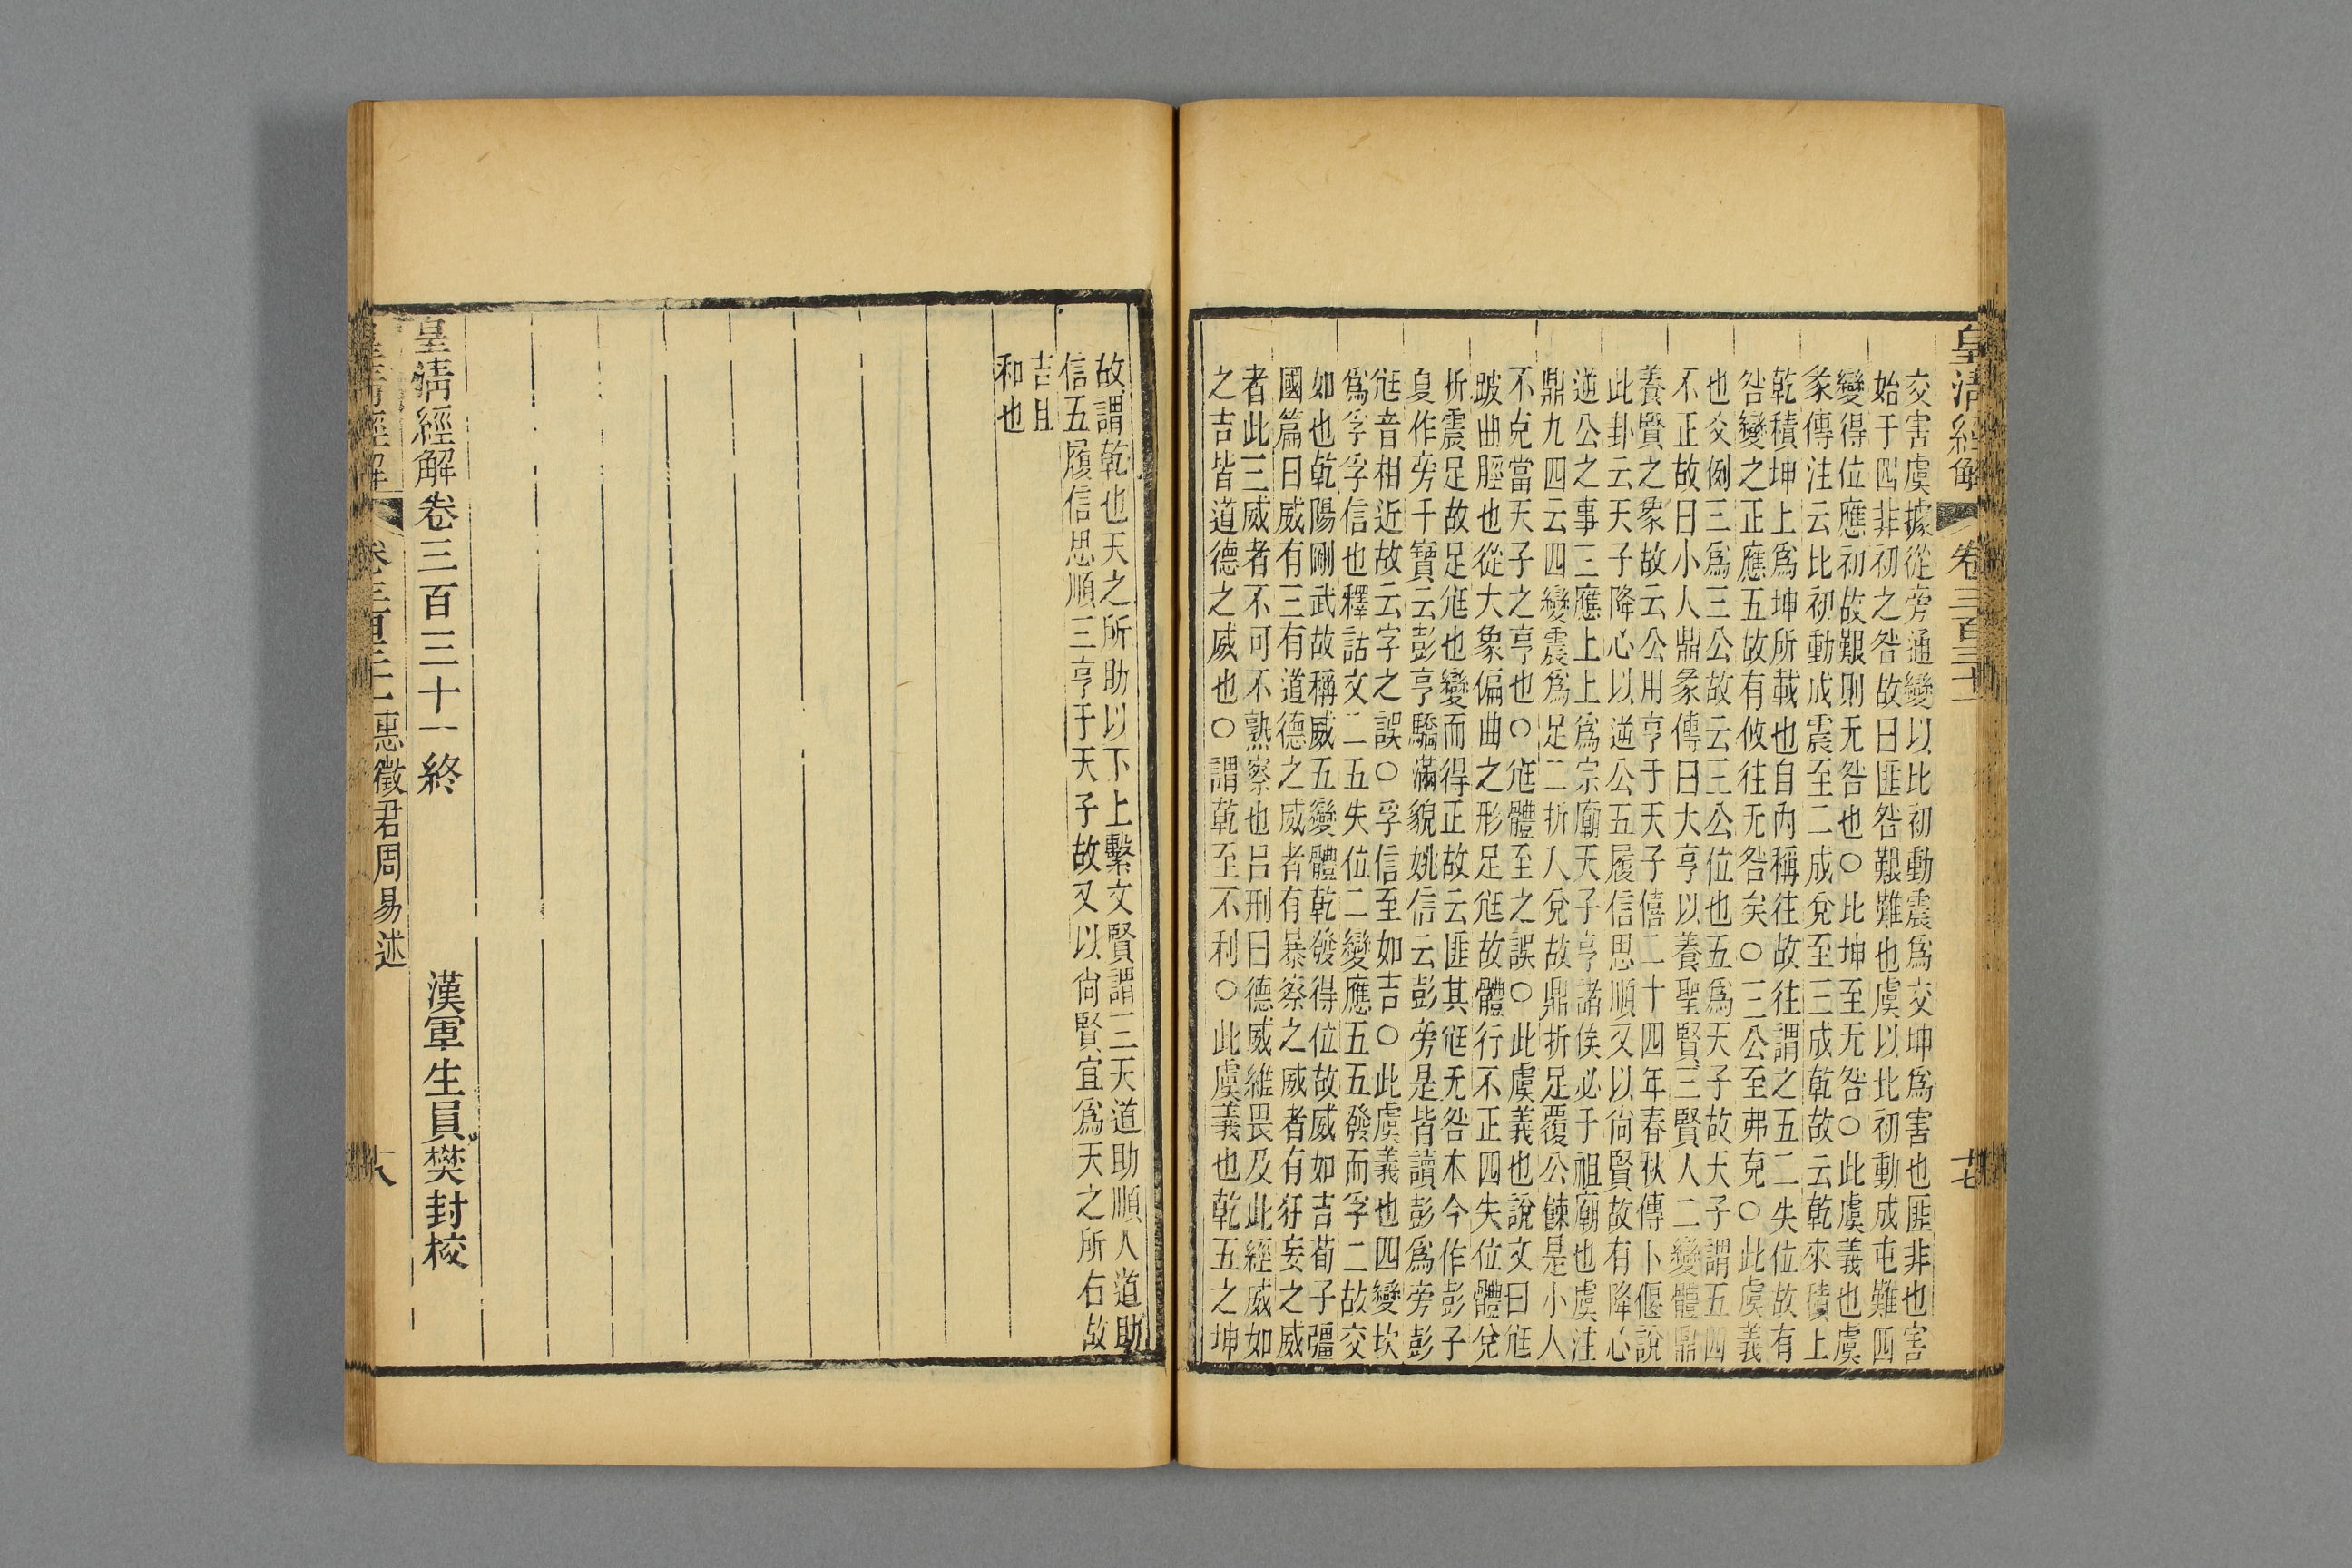 皇清經解 卷三百三十一 十七
交害虞據從旁通變以比初動震爲交坤爲害也匪非也害
始于四非初之咎故曰匪咎艱難也虞以比初動成屯難四
變得位應初故艱則无咎也○比坤至无咎○此虞義也虞
彖傳注云比初動成震至二成兌至三成乾故云乾來積上
乾積坤上爲坤所載也自內稱往故往謂之五二失位故有
咎變之正應五故有攸往无咎矣○三公至弗克○此虞義
也爻例三爲三公故云三公位也五爲天子故天子謂五四
不正故曰小人鼎彖傳曰大亨以養聖賢三賢人二變體鼎
養賢之象故云公用亨于天子僖二十四年春秋傳卜偃說
此卦云天子降心以逆公五履信思順又以尚賢故有降心
逆公之事三應上上爲宗廟天子亨諸侯必于祖廟也虞注
鼎九四云四變震爲足二折入兌故鼎折足覆公餗是小人
不克當天子之亨也○尪體至之誤○此虞義也說文曰尪
跛曲脛也從大象偏曲之形足尪故體行不正四失位體兌
折震足故足尪也變而得正故云匪其尪无咎本今作彭子
夏作旁干寶云彭亨驕滿貌姚信云彭旁是皆讀彭爲旁彭
尪音相近故云字之誤○孚信至如吉○此虞義也四變坎
爲孚孚信也釋詁文二五失位二變應五五發而孚二故交
如也乾陽剛武故稱威五變體乾發得位故威如吉荀子彊
國篇曰威有三有道德之威者有暴察之威者有狂妄之威
者此三威者不可不熟察也呂刑曰德威維畏及此經威如
之吉皆道德之威也○謂乾至不利○此虞義也乾五之坤
故謂乾也天之所助以下上繫文賢謂三天道助順人道助
信五履信思順三亨于天子故又以尚賢宜爲天之所右故
吉且
和也
皇清經解卷三百三十一終 漢軍生員樊封校
皇清經解 卷三百三十一惠徵君周易述 十八